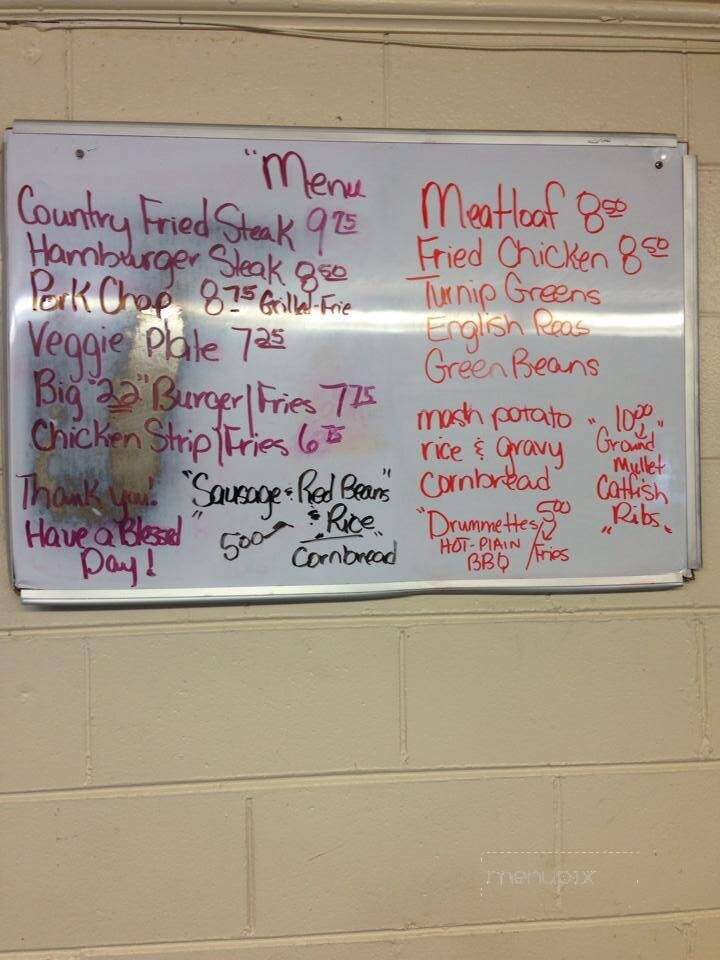 "Menu
Country Fried Steak 9 75
Hamburger Steak 8 50
Pork Chop 8 75 Grilled-Frie
Veggie Plate 7 25
Big "22" Burger/Fries 7 75
Chicken Strip/Fries 6 75
Thank you!
Have a Blessed
Day!
"Sausage & Red Beans"
& Rice
" 5 00
Cornbread "
Meatloaf 8 50
Fried Chicken 8 50
Turnip Greens
English Peas
Green Beans
mash potato
rice & gravy
Cornbread
"Drummettes 5 00
HOT-PLAIN
BBQ / Fries
" 10 00 "
Ground
Mullet
Catfish
" Ribs "
menupix